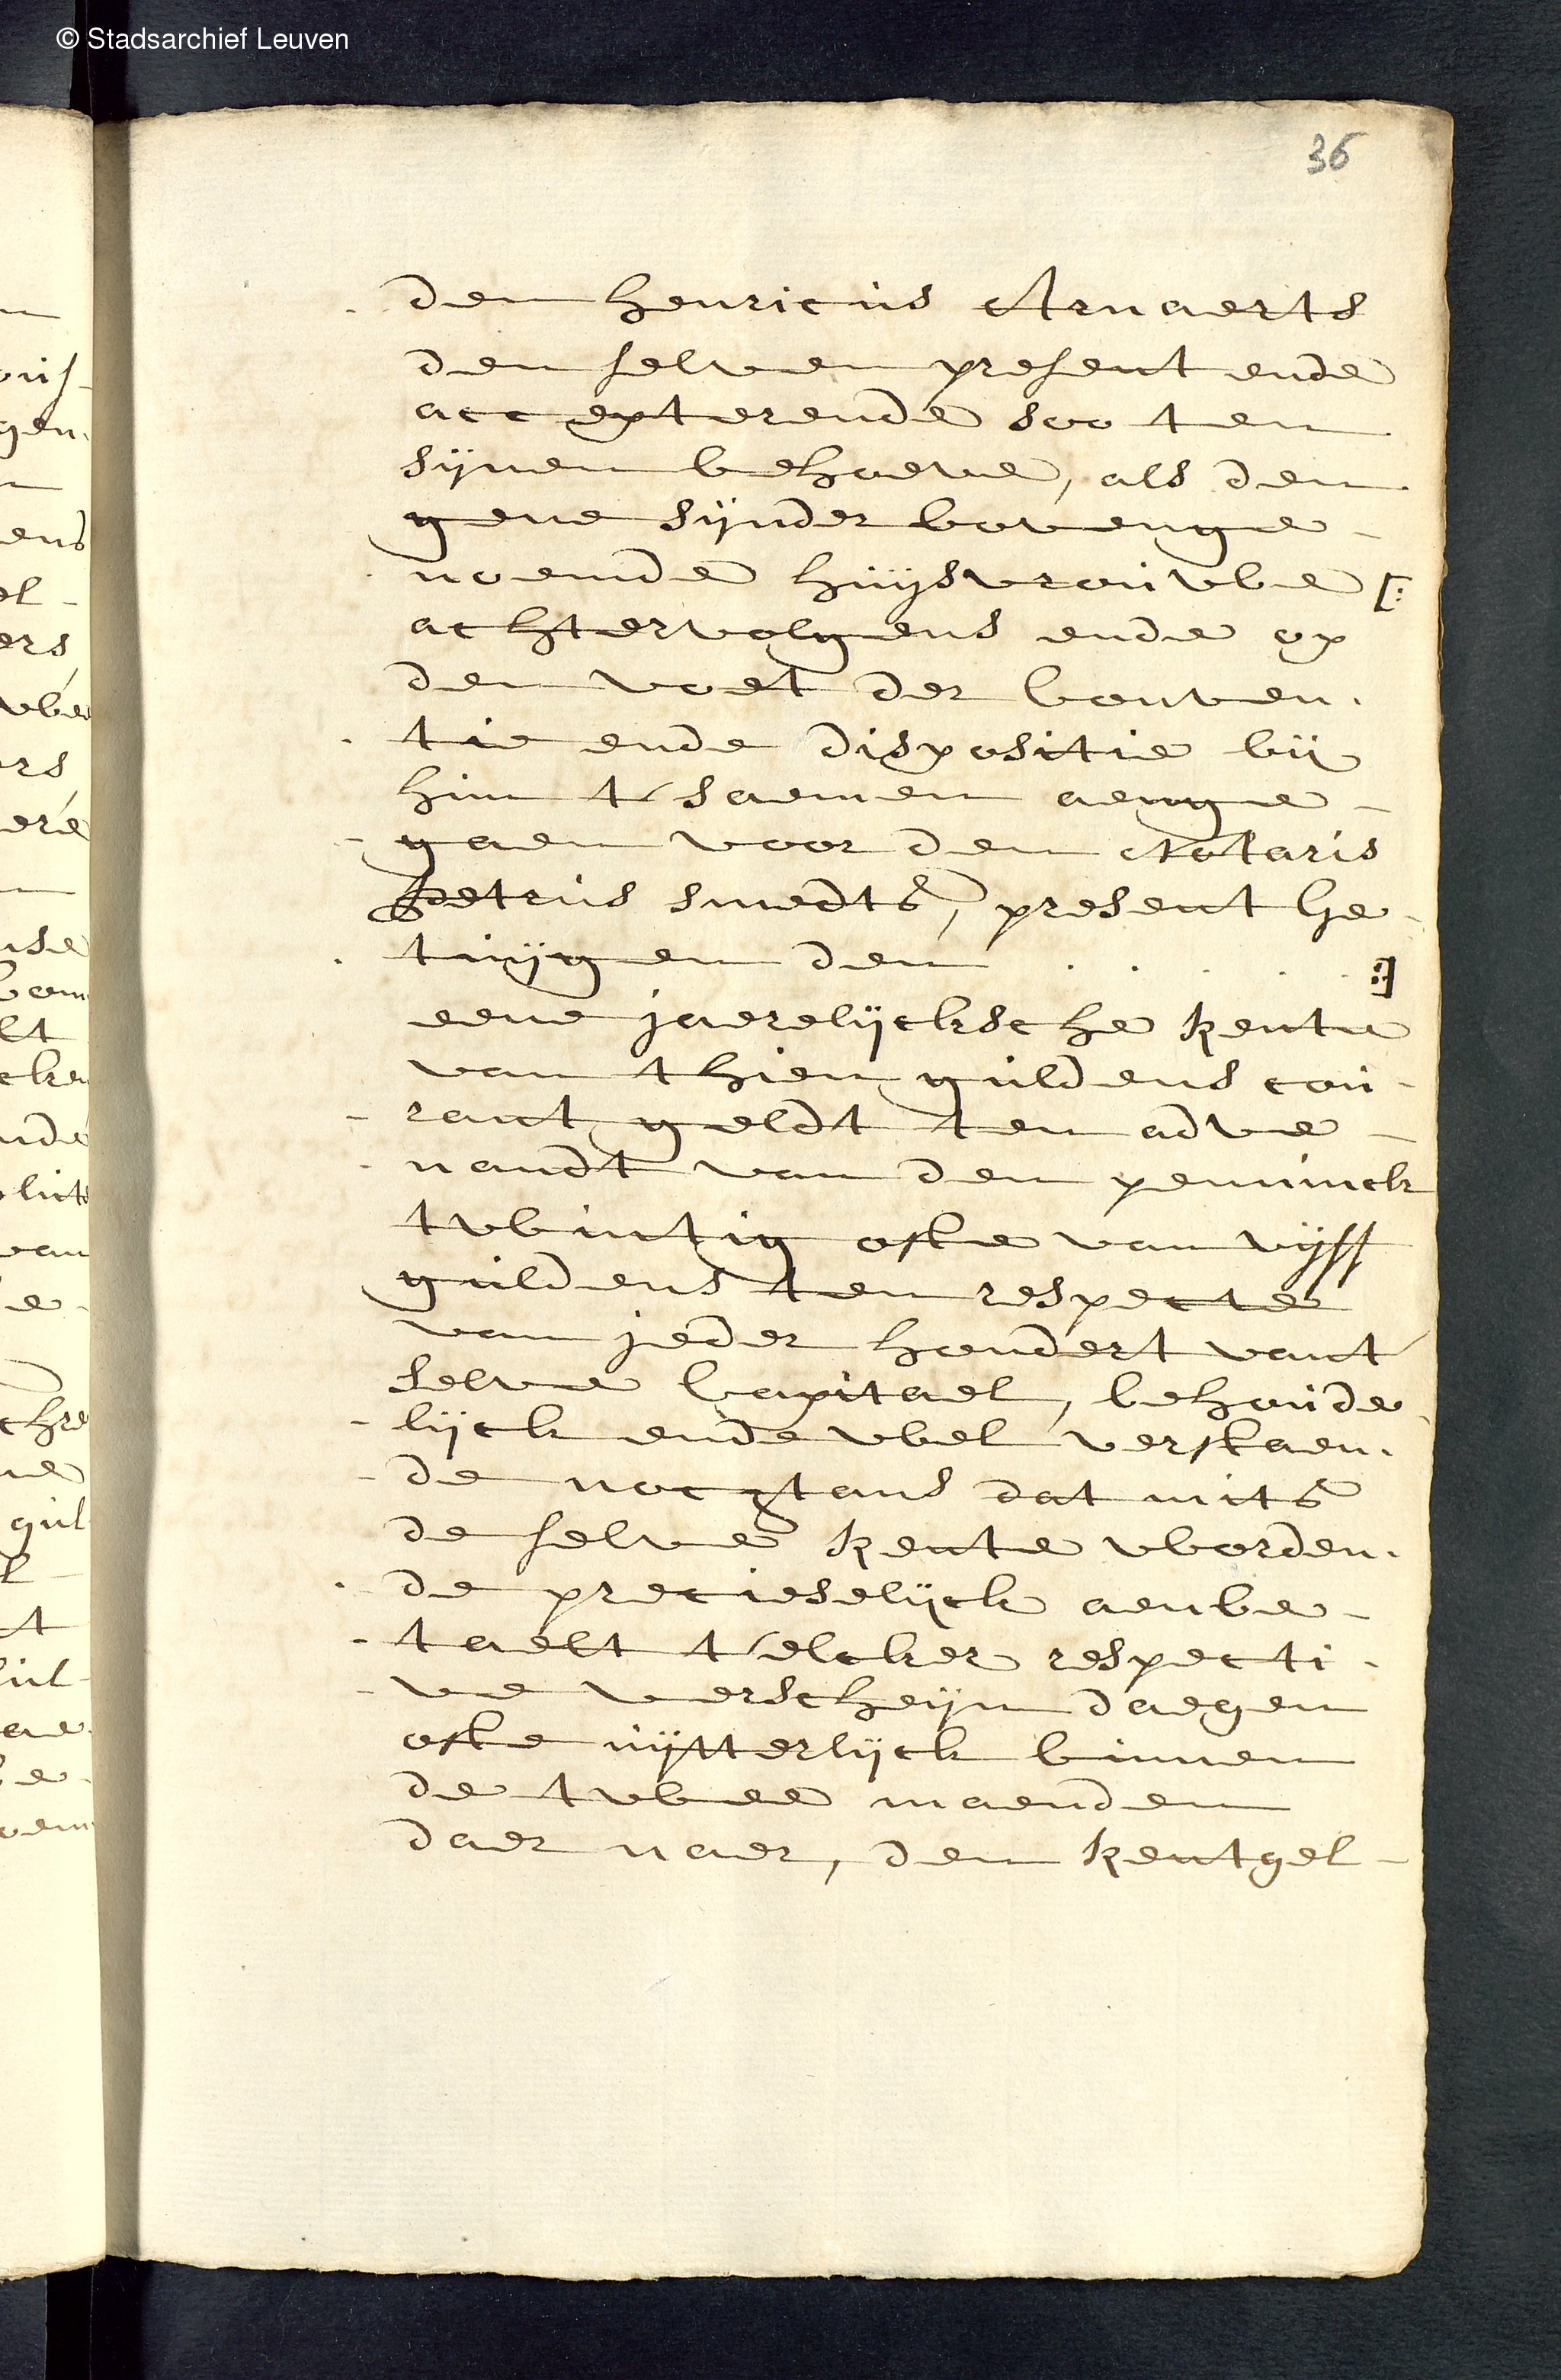 © Stadsarchief Leuven
36
den Henricus Arnaerts
den selven present ende
accepterende soo ten
sijnen behoeve, als den
gene sijnder bovenge-
noemde huijsvrouwe [:
achtervolgens ende op
den voet der Conven-
tie ende dispositie bij
hun t'saemen aenge-
gaen voor den Notaris
Petrus Smedts, present ge-
tuijgen den . . . . :]
eene jaerelijcksche Rente
van thien guldens cou-
rant geldt ten adve-
nandt van den penninck
twintig ofte van vijff
guldens ten respecte
van jeder hondert vant
selve Capitael, behoude-
lijck ende wel verstaen-
de nochtans dat mits
de selve Rente worden-
de precieselijck aenbe-
taelt t'elcker respecti-
ve verscheijn daegen
ofte uijtterlijck binnen
de twee maenden
daer naer, den Rentgel-